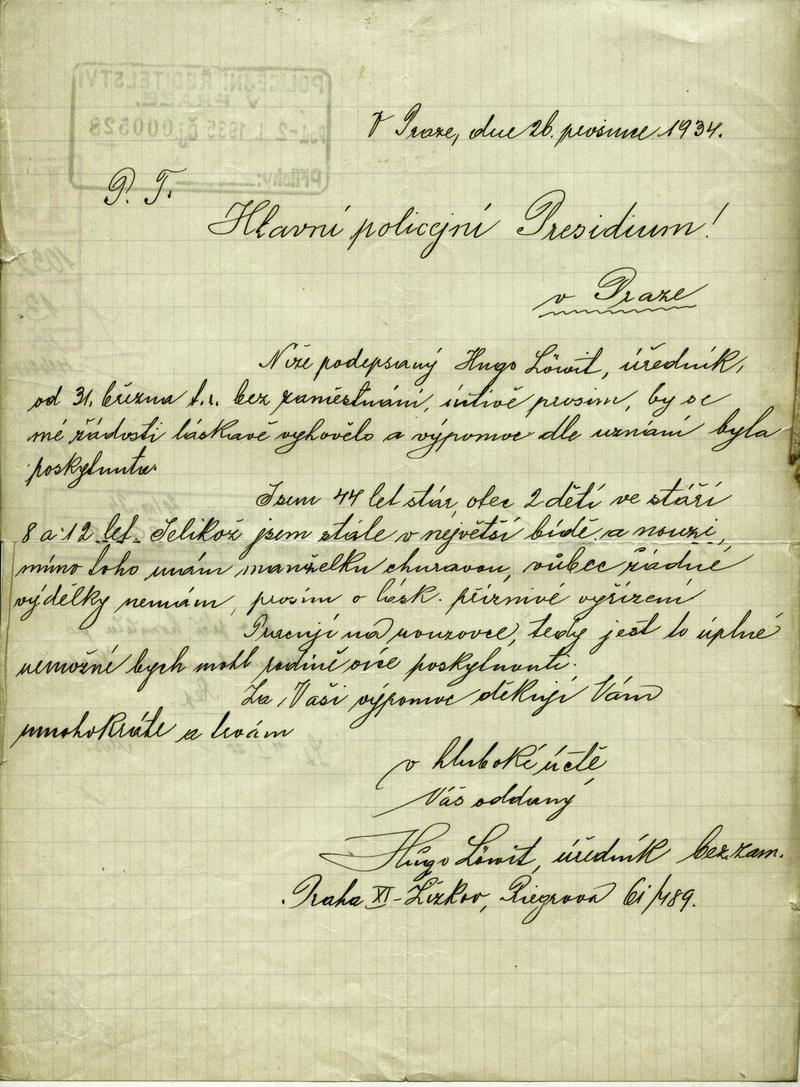 V Praze, dne 26. prosince 1934.
P. T.
Hlavní policejní Presidium!
v Praze
Níže podepsaný Hugo Löwit, úředník,
od 31. března t.r. bez zaměstnání, uctivě prosím, by se
mé žádosti láskavě vyhovělo a výpomoc dle uznání byla
poskytnuta.
Jsem 44 let stár, otec 2 dětí ve stáří
8 a 12 let. Jelikož jsem stále v největší bídě a nouzi,
mimo toho mám manželku churavou, vůbec žádné
výdělky nemám, prosím o lásk. příznivé vyřízení
Pracuji na nouzovce, tedy jest to úplně
nemožné bych mohl rodině více poskytnouti.
Za Vaši výpomoc děkuji Vám
mnohokráte a trvám
v hluboké úctě
Váš oddaný
Hugo Löwit, úředník bez zam.
Praha XI-Žižkov, Riegrova 61/489.
POLICEJNÍ ŘEDITELSTVÍ
V PRAZE.
Došlo -2. I. 1935 Čj: 000528
Přílohy: